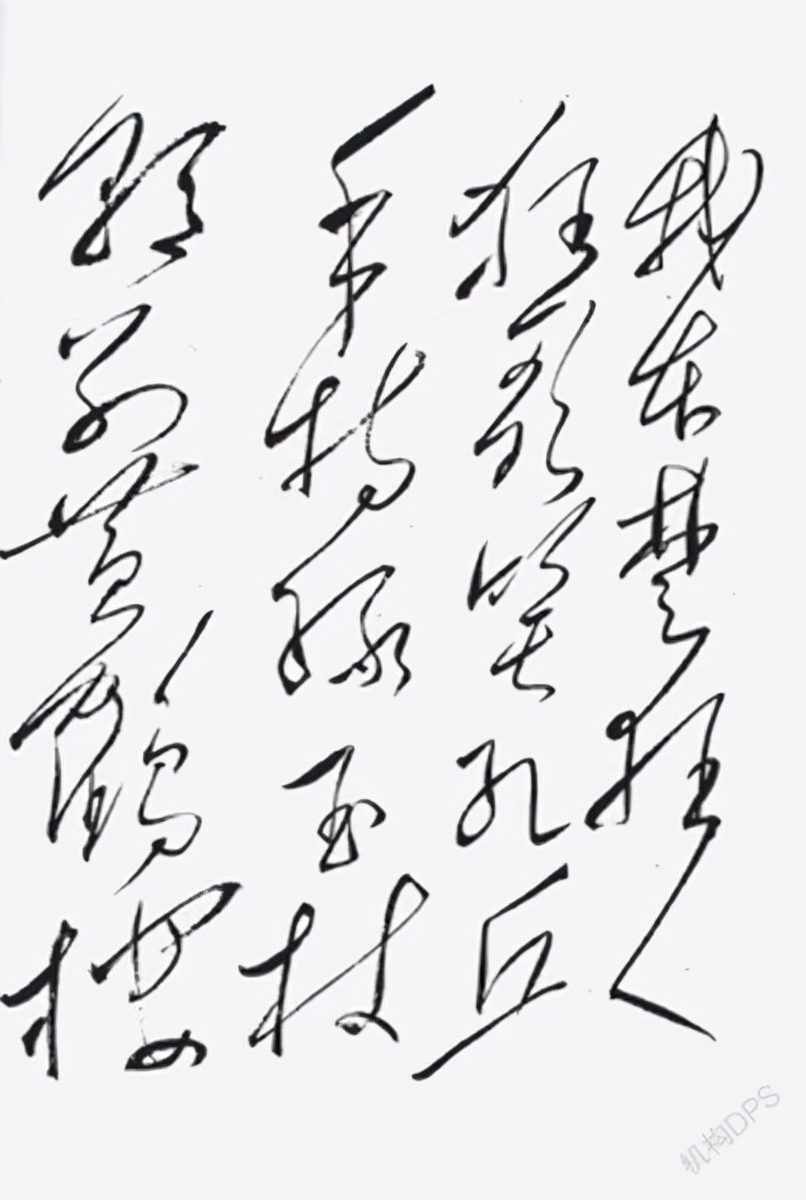 我本楚狂人
狂歌笑孔丘
手持绿玉杖
朝别黄鹤楼
机构DPS